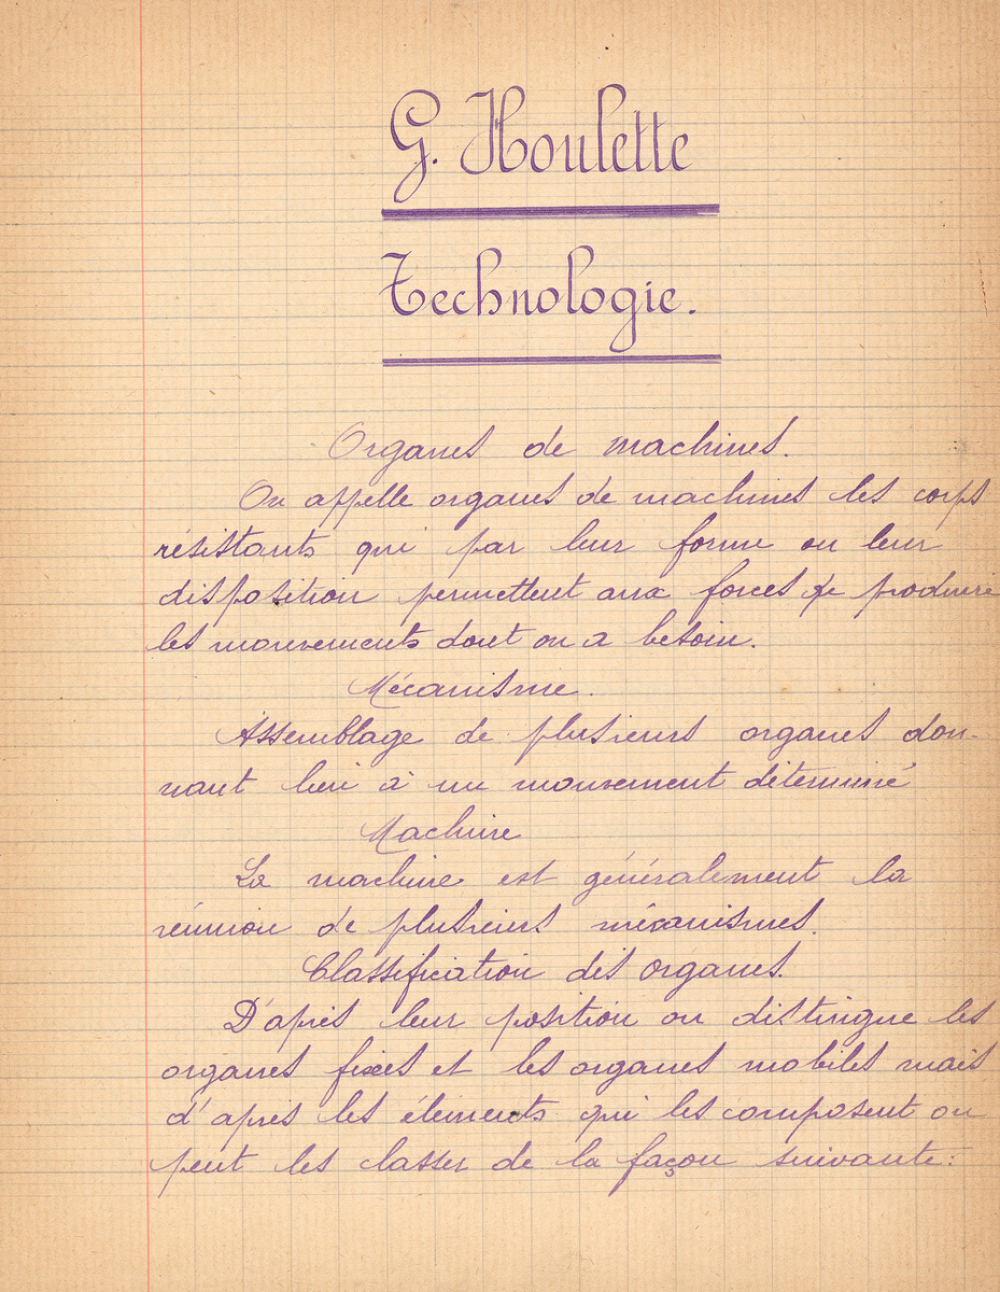 G. Houlette
Technologie.
Organes de machines.
On appelle organes de machines les corps
résistants qui par leur forme ou leur
disposition permettent aux forces de produire
les mouvements dont on a besoin.
Mécanisme.
Assemblage de plusieurs organes don-
nant lieu à un mouvement déterminé
Machine
La machine est généralement la
réunion de plusieurs mécanismes.
Classification des organes.
D'après leur position on distingue les
organes fixes et les organes mobiles mais
d'après les éléments qui les composent on
peut les classer de la façon suivante: